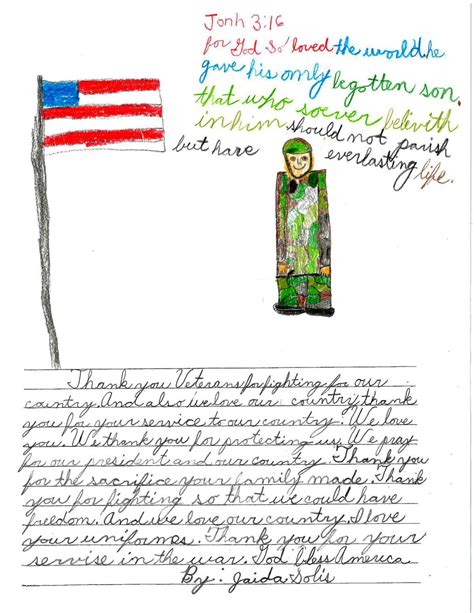 Jonh 3:16
for God so loved the world he
gave his only begotten son.
that who soever belivith
in him should not parish
but have everlasting life.
Thank you Veterans for fighting for our
country. And also we love our country, thank
you for your service to our country. We love
you. We thank you for protecting us. We pray
for our president and our country. Thank you
for the sacrifice your family made. Thank
you for fighting so that we could have
freedom. And we love our country. I love
your uniforms. Thank you for your
servise in the war. God bless America
By: Jaida Solis